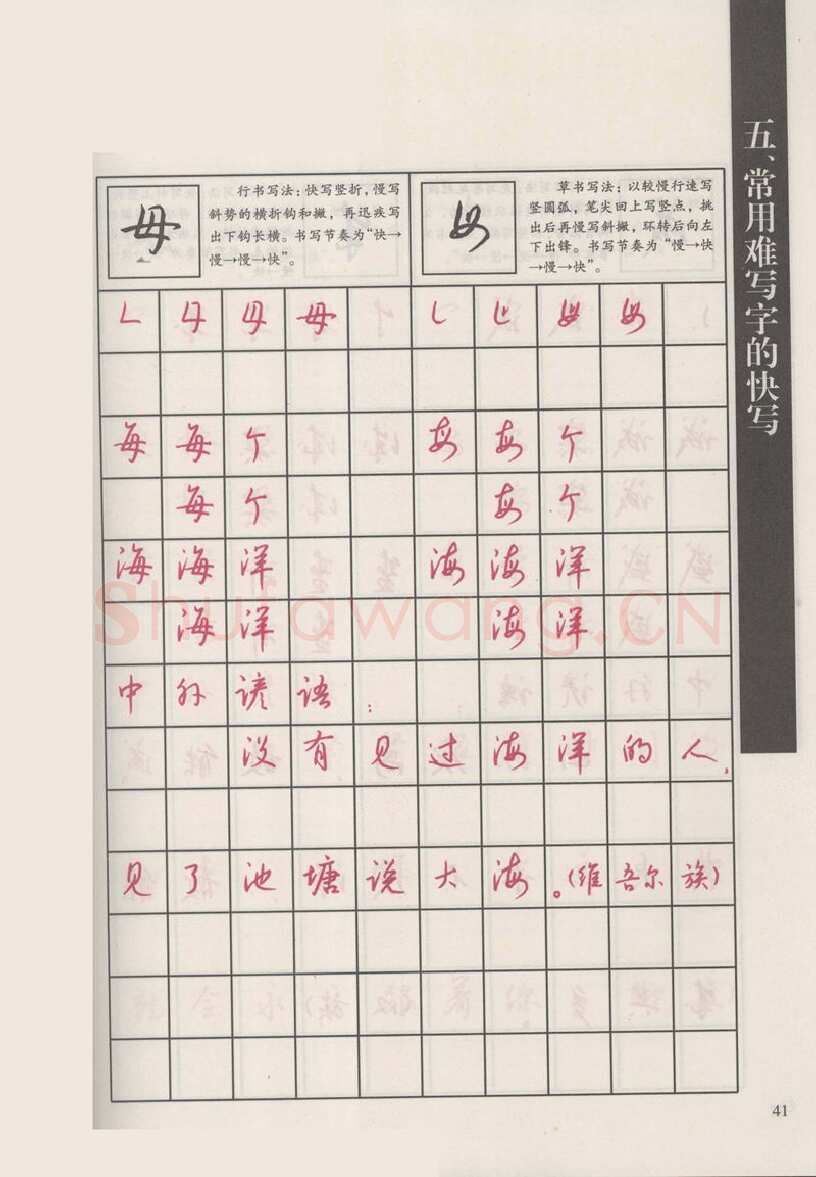 五、常用难写字的快写
母
行书写法：快写竖折，慢写
斜势的横折钩和撇，再迅疾写
出下钩长横。书写节奏为“快→
慢→慢→快”。
母
草书写法：以较慢行速写
竖圆弧，笔尖回上写竖点，挑
出后再慢写斜撇，环转后向左
下出锋。书写节奏为“慢→快
→慢→快”。
母 母
每每个 每每个
每个 每个
海海洋 海海洋
海洋 海洋
中外谚语：
没有见过海洋的人，
见了池塘说大海。（维吾尔族）
Shufawang.CN
41